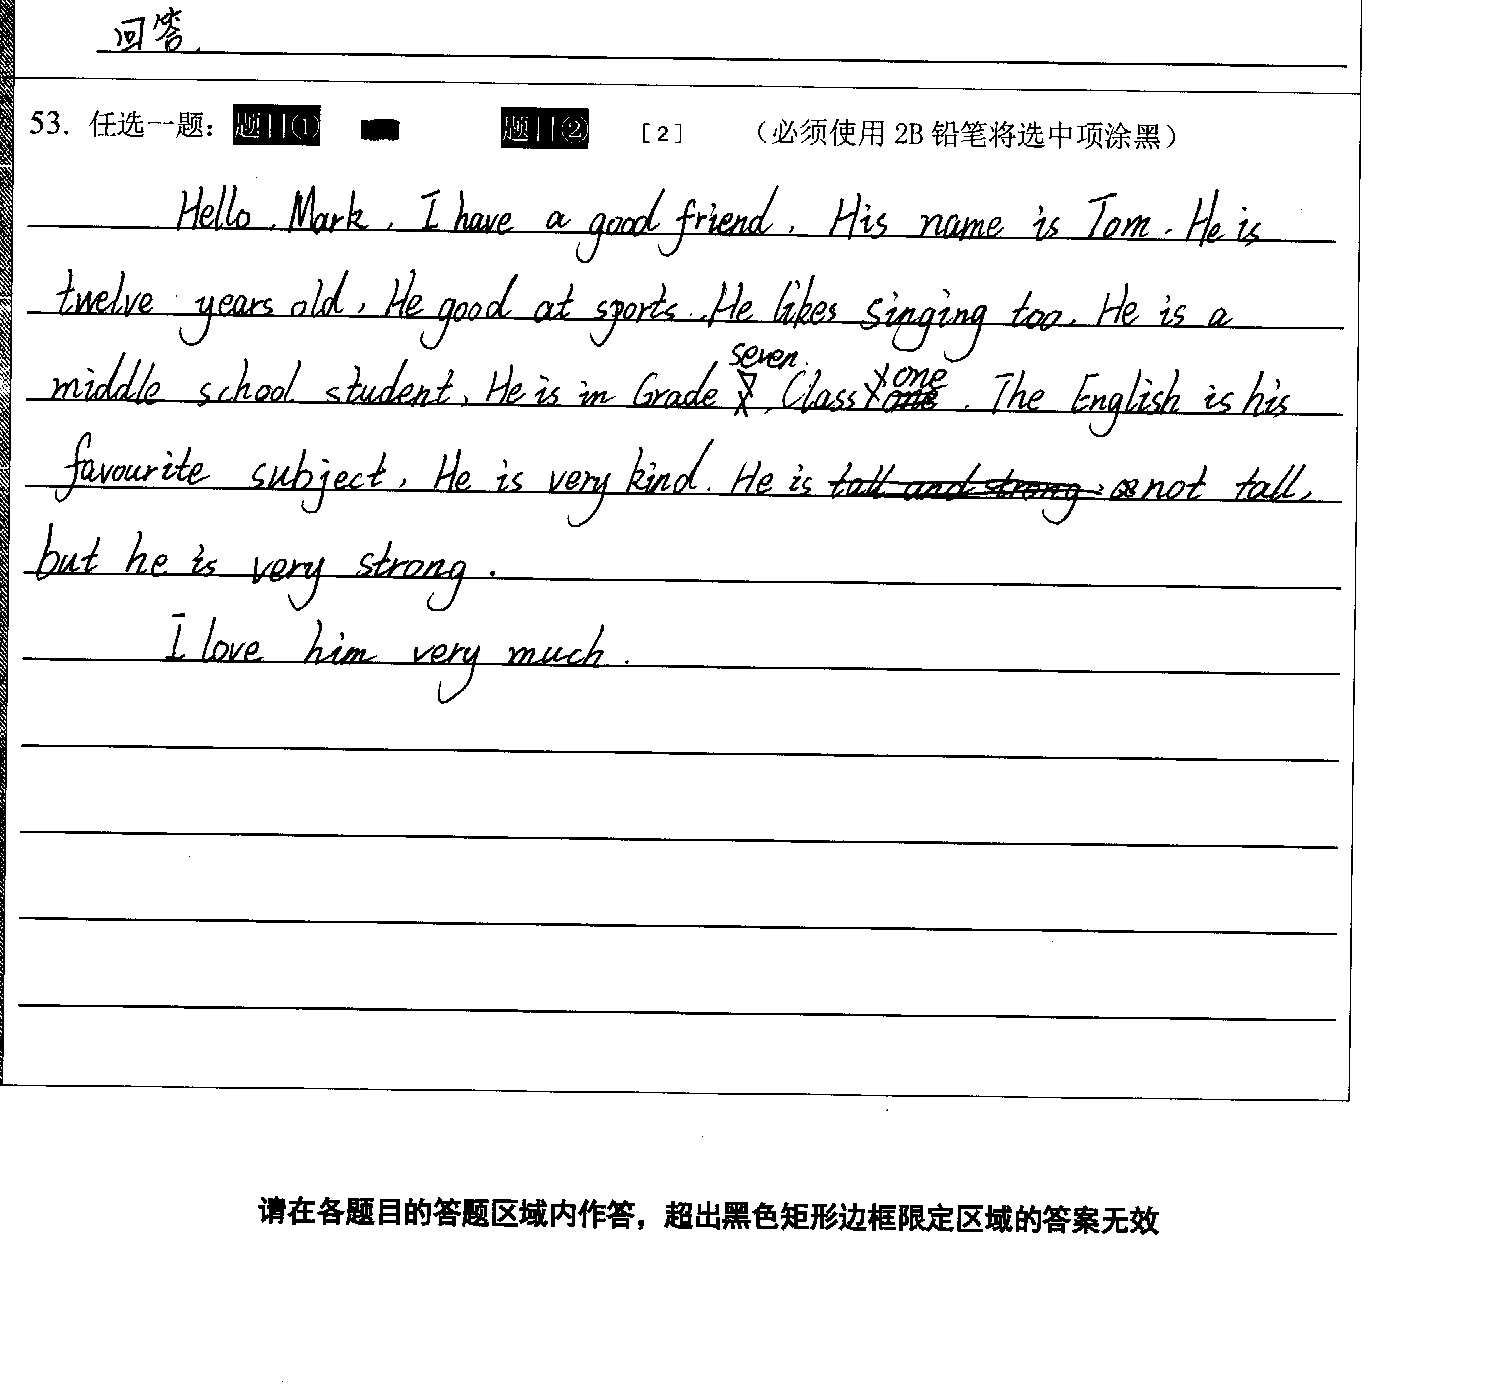 回答.
53. 任选一题: 题目① 题目② [2] (必须使用 2B 铅笔将选中项涂黑)
Hello, Mark, I have a good friend. His name is Tom. He is
twelve years old, He good at sports. He likes singing too. He is a
seven one
middle school student, He is in Grade 7, Class one. The English is his
favourite subject, He is very kind. He is tall and strong. not tall,
but he is very strong.
I love him very much.
请在各题目的答题区域内作答，超出黑色矩形边框限定区域的答案无效